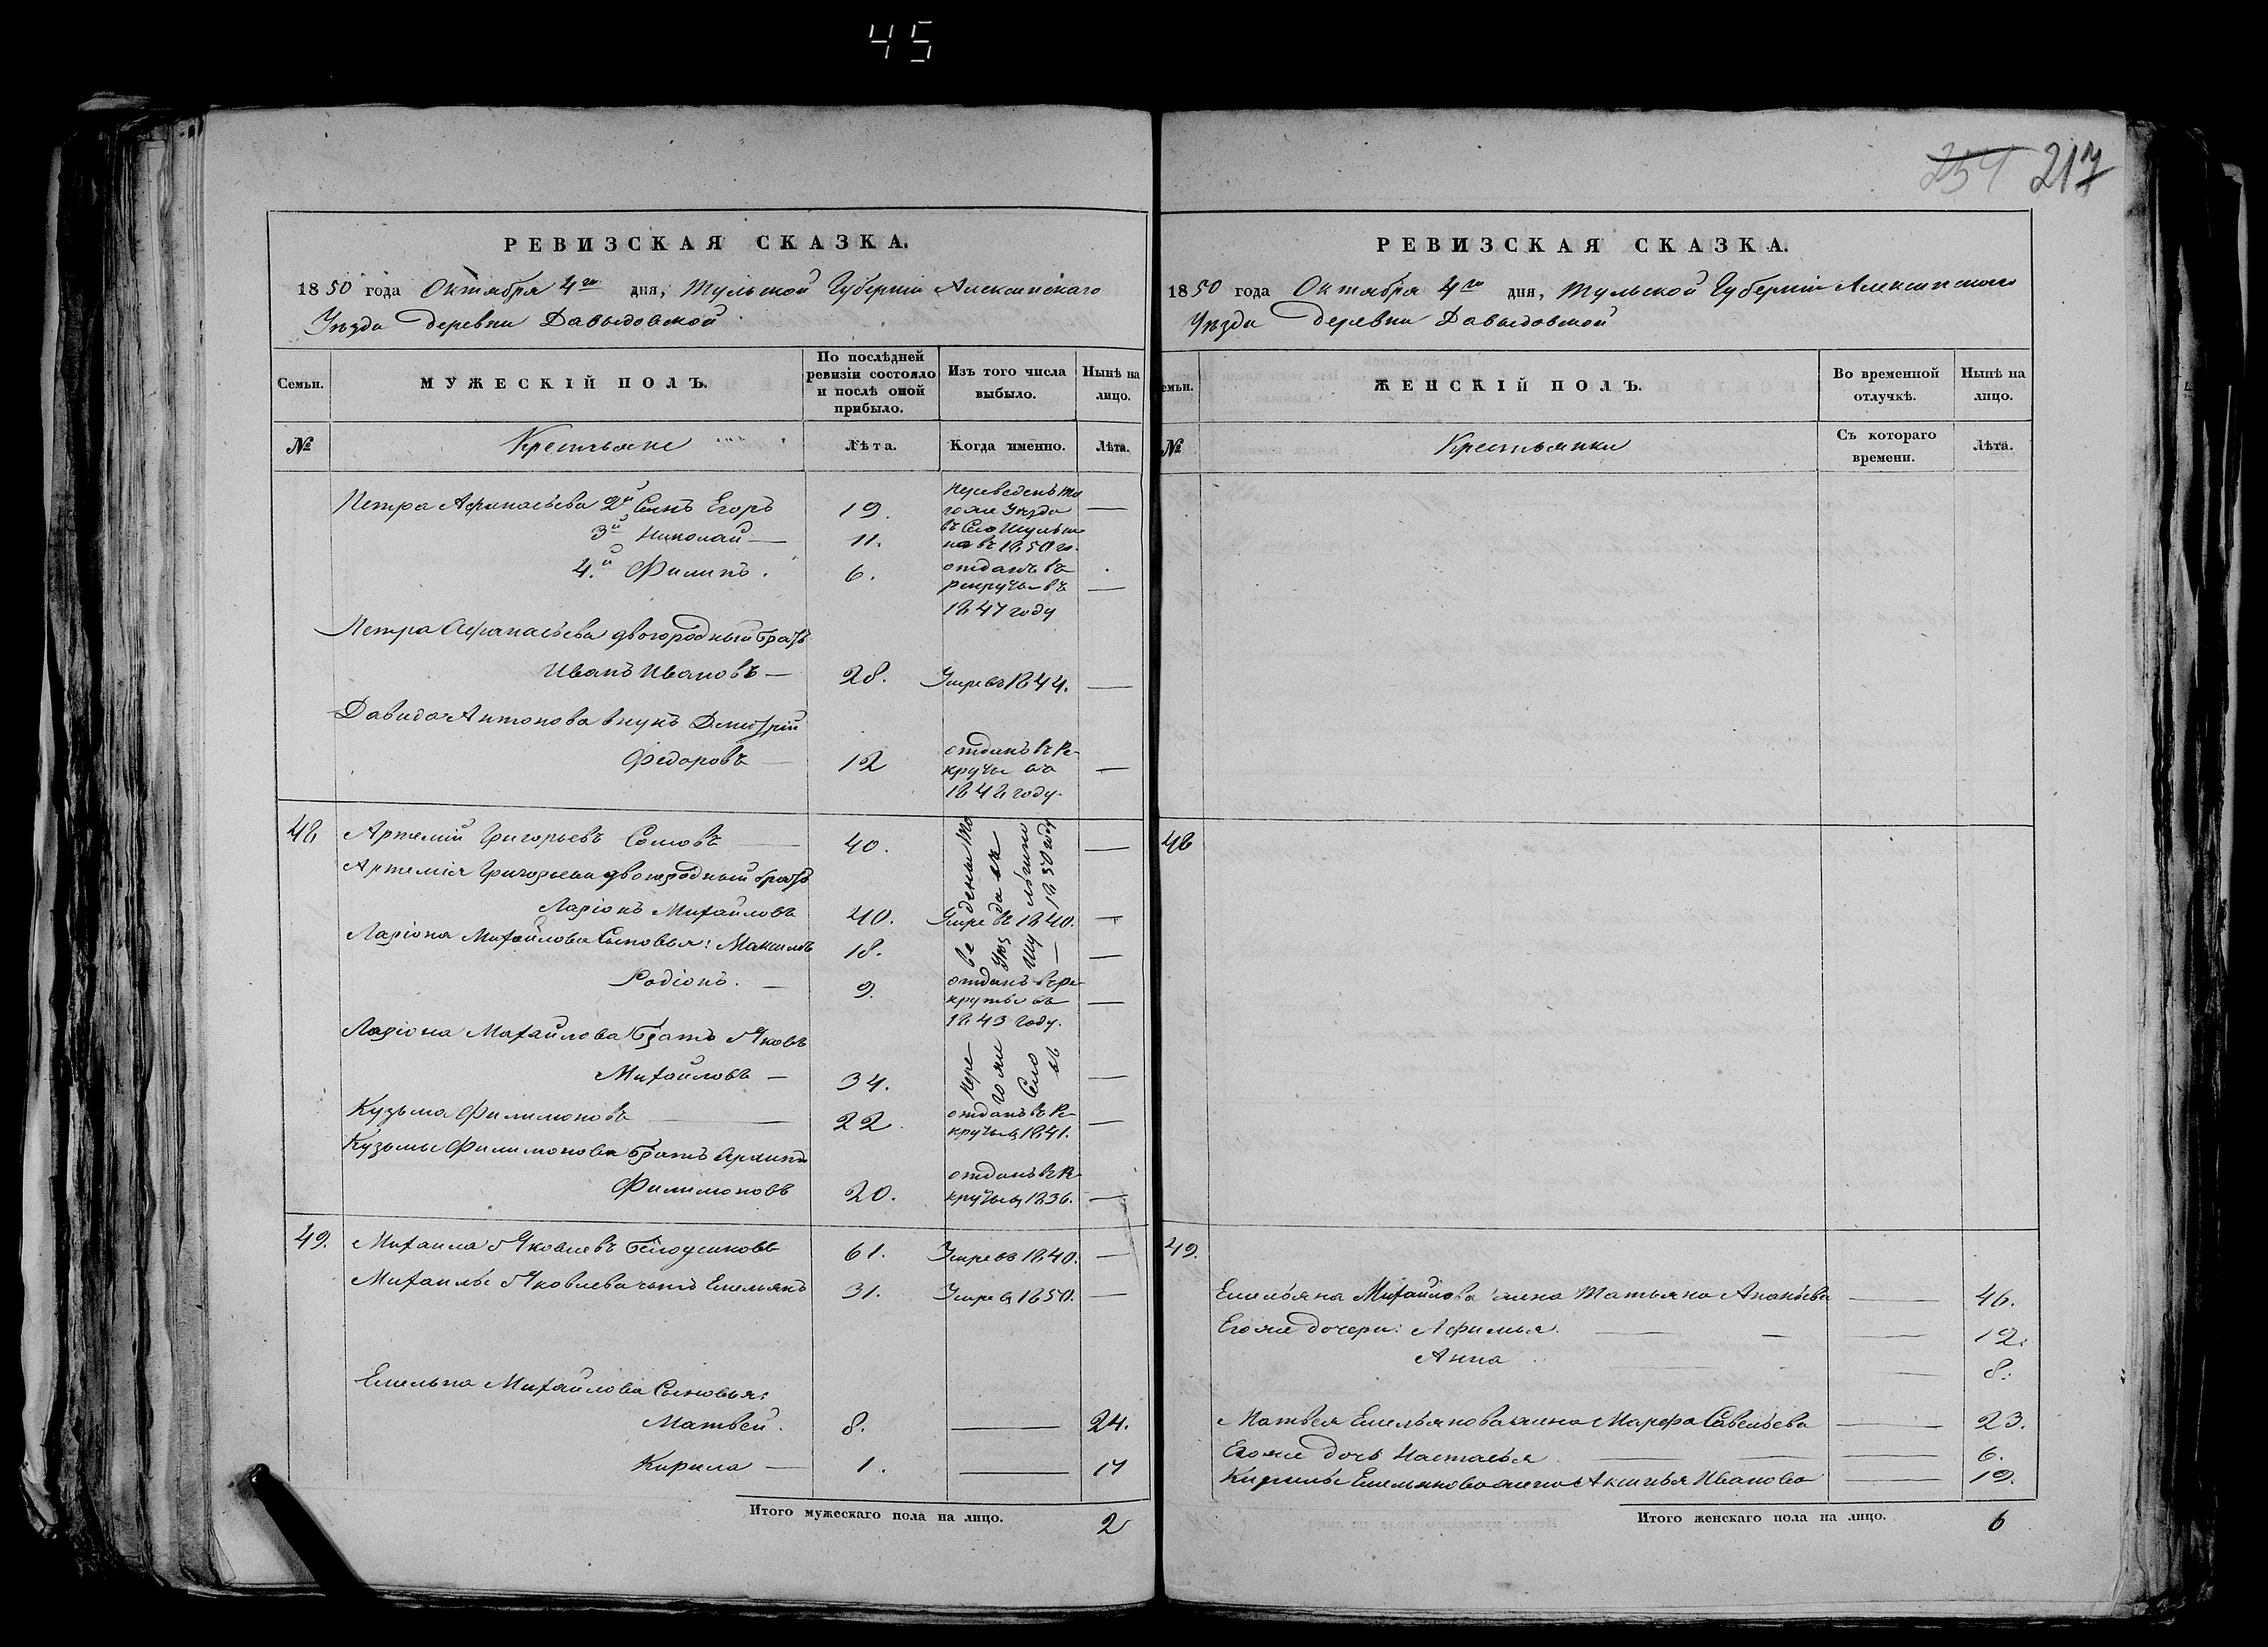 45
254 217
РЕВИЗСКАЯ СКАЗКА.
1850 года Октября 4го дня, Тульской Губерніи Алексинскаго
Уѣзда деревни Давыдовской
Семьи. МУЖЕСКІЙ ПОЛЪ. По послѣдней ревизіи состояло и послѣ оной прибыло. Изъ того числа выбыло. Нынѣ на лицо.
№ Крестьяне Лѣта. Когда именно. Лѣта.
Петра Афанасьева 2й Сынъ Егоръ 19. переведенъ то
гоже Уѣзда
3й Николай — 11. въ Село Шульги
но въ 1850 го.
4й Филипъ. 6. отданъ въ
рекруты въ —
1847 году
Петра Афанасьева двоюродный братъ
Иванъ Ивановъ — 28. Умре въ 1844. —
Давида Антонова внукъ Дмитрій
Федоровъ — 12 отданъ въ Ре-
круты въ —
1848 году.
48 Артемій Григорьевъ Сомовъ — 40. —
Артемія Григорьева двоюродный братъ
Ларіонъ Михайловъ 40. Умре въ 1840. —
Ларіона Михайлова Сыновья: Максимъ 18. —
Родіонъ. — 9. отданъ въ ре-
круты въ —
1843 году.
Ларіона Михайлова Братъ Яковъ
Михайловъ — 34. —
Переведены то
гоже Уѣзда въ
Село Шульгино
въ 1850 году
Кузьма Филимоновъ — 22. отданъ въ Ре-
круты в 1841. —
Кузьмы Филимонова Братъ Архипъ
Филимоновъ 20. отданъ въ Ре-
круты в 1836. —
49. Михаила Яковлевъ 61. Умре въ 1840. —
Михаилы Яковлева сынъ Емельянъ 31. Умре в 1850. —
Емельна Михайлова Сыновья:
Матвей. 8. — 24.
Кирила — 1. — 17
Итого мужескаго пола на лицо. 2
РЕВИЗСКАЯ СКАЗКА.
1850 года Октября 4го дня, Тульской Губерніи Алексинскаго
Уѣзда деревни Давыдовской
Семьи. ЖЕНСКІЙ ПОЛЪ. Во временной отлучкѣ. Нынѣ на лицо.
№ Крестьянки Съ котораго времени. Лѣта.
48
49.
Емельяна Михайлова жена Татьяна Ананьева — 46.
Егоже дочери: Афимья. — 12.
Анна — 8.
Матвея Емельянова жена Марфа Савельева — 23.
Егоже дочь Настасья — 6.
Кирилы Емельянова жена Аксинья Иванова — 19.
Итого женскаго пола на лицо. 6